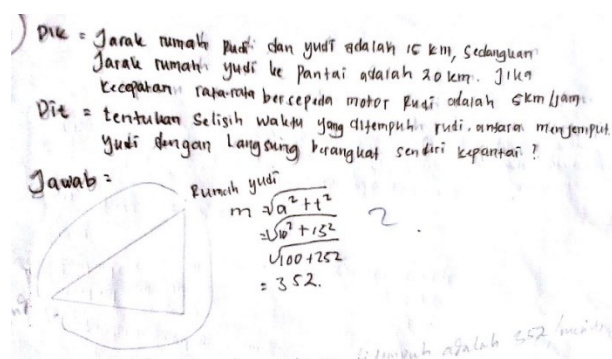 Dik = Jarak rumah Rudi dan yudi adalah 15 km, Sedangkan
Jarak rumah yudi ke Pantai adalah 20 km. Jika
kecepatan rata-rata bersepeda motor Rudi adalah 5km/jam.
Dit = tentukan Selisih waktu yang ditempuh rudi. antara menjemput
yudi dengan Langsung berangkat sendiri kepantai ?
Jawab =
Rumah yudi
m = √a² + t²
= √10² + 15²
√100 + 252
= 352.
2
ditempuh adalah 352/